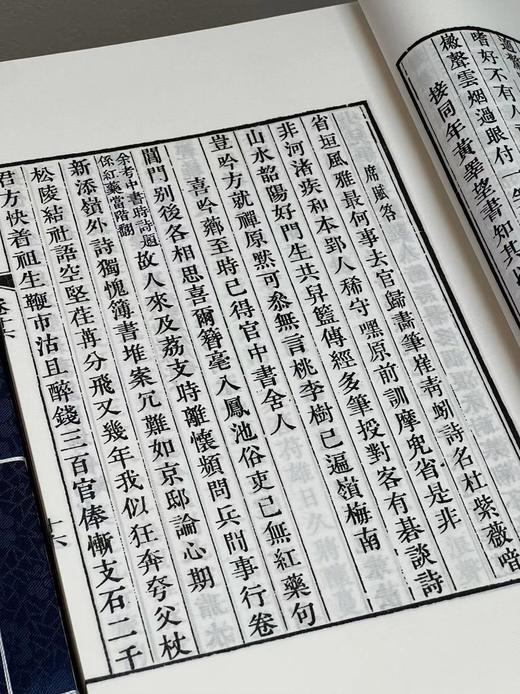 嗜好不有人
檄聲雲烟過眼付
接同年黃翠
書知其
席賦答
省垣風雅最何事去官歸畫筆崔青蚓詩名杜紫薇喑
非河渚疾和本郢人稀守嘿原前訓摩皃省是非
山水韶陽好門生共舁籃傳經多筆投對客有碁談詩
豈吟方就禪原默可叅無言桃李樹已遍嶺梅南
喜吟薌至時已得官中書舍人
閶門别後各相思喜爾簪毫入鳳池俗吏已無紅藥句
余考中書時詩題
係紅藥當階翻
故人來及荔支時離懷頻問兵間事行卷
新添嶺外詩獨愧簿書堆案冗難如京邸論心期
松陵結社語空堅荏苒分飛又幾年我似狂奔夸父杖
君方快着祖生鞭市沽且醉錢三百官俸慚支石二千
十六